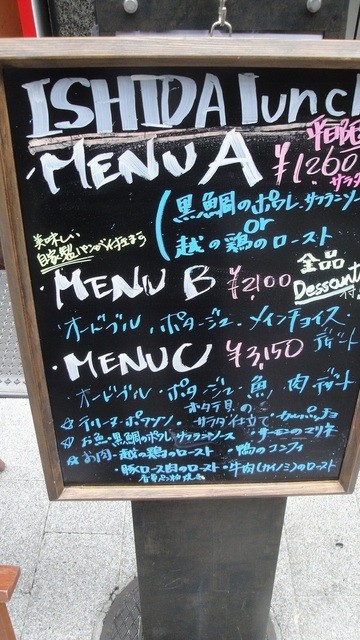 ISHIDA lunc
平日限
MENU A ¥1260
サラダ
黒鯛のポワレ.サフランソース
or
越の鶏のロースト
美味しい
自家製パンが付きます
MENU B ¥2,100
全品
Dessert
オードブル.ポタージュ.メインチョイス
デザート
MENU C ¥3,150
オードブル.ポタージュ.魚.肉.デザート
ホタテ貝の
サラダ仕立て
お魚・黒鯛のポワレサフランソース ・サーモンのマリネ
お肉・越の鶏のロースト ・鴨のコンフィ
豚ロース肉のロースト・牛肉(カイノミ)のロースト